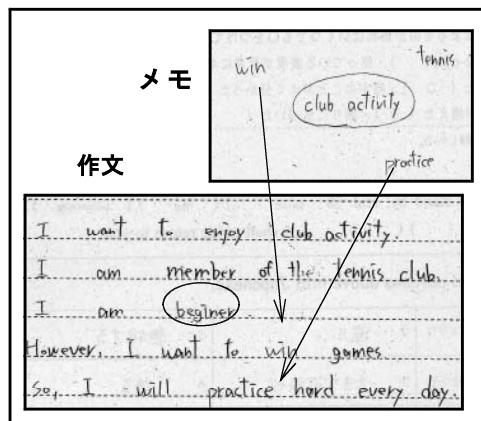 メモ
win
tennis
club activity
practice
作文
I want to enjoy club activity.
I am member of the tennis club.
I am beginer.
However, I want to win games
So, I will practice hard every day.